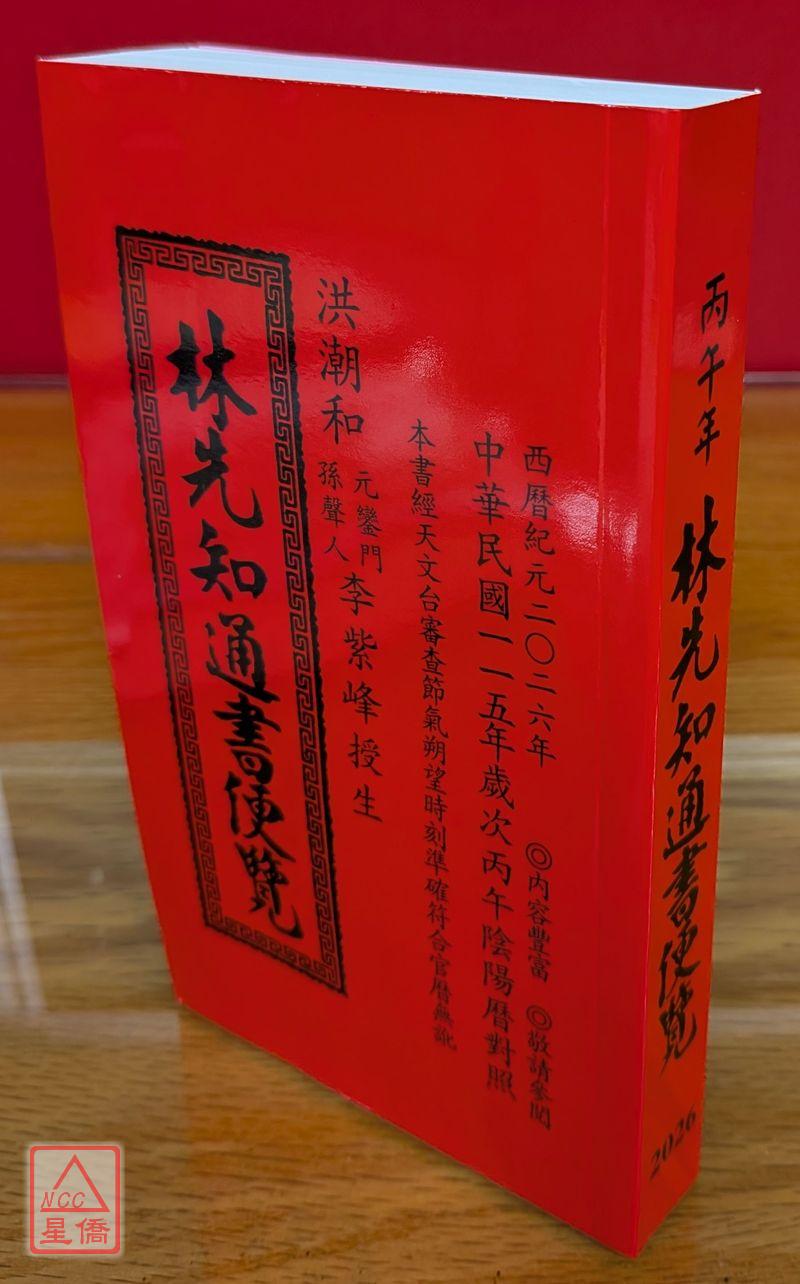 西曆紀元二〇二六年 ◎內容豐富 ◎敬請參閱
中華民國一一五年歲次丙午陰陽曆對照
本書經天文台審查節氣朔望時刻準確符合官曆無訛
洪潮和 元鑾門 孫聲人 李紫峰授生
林先知通書便覽
丙午年 林先知通書便覽 2026
NCC
星僑